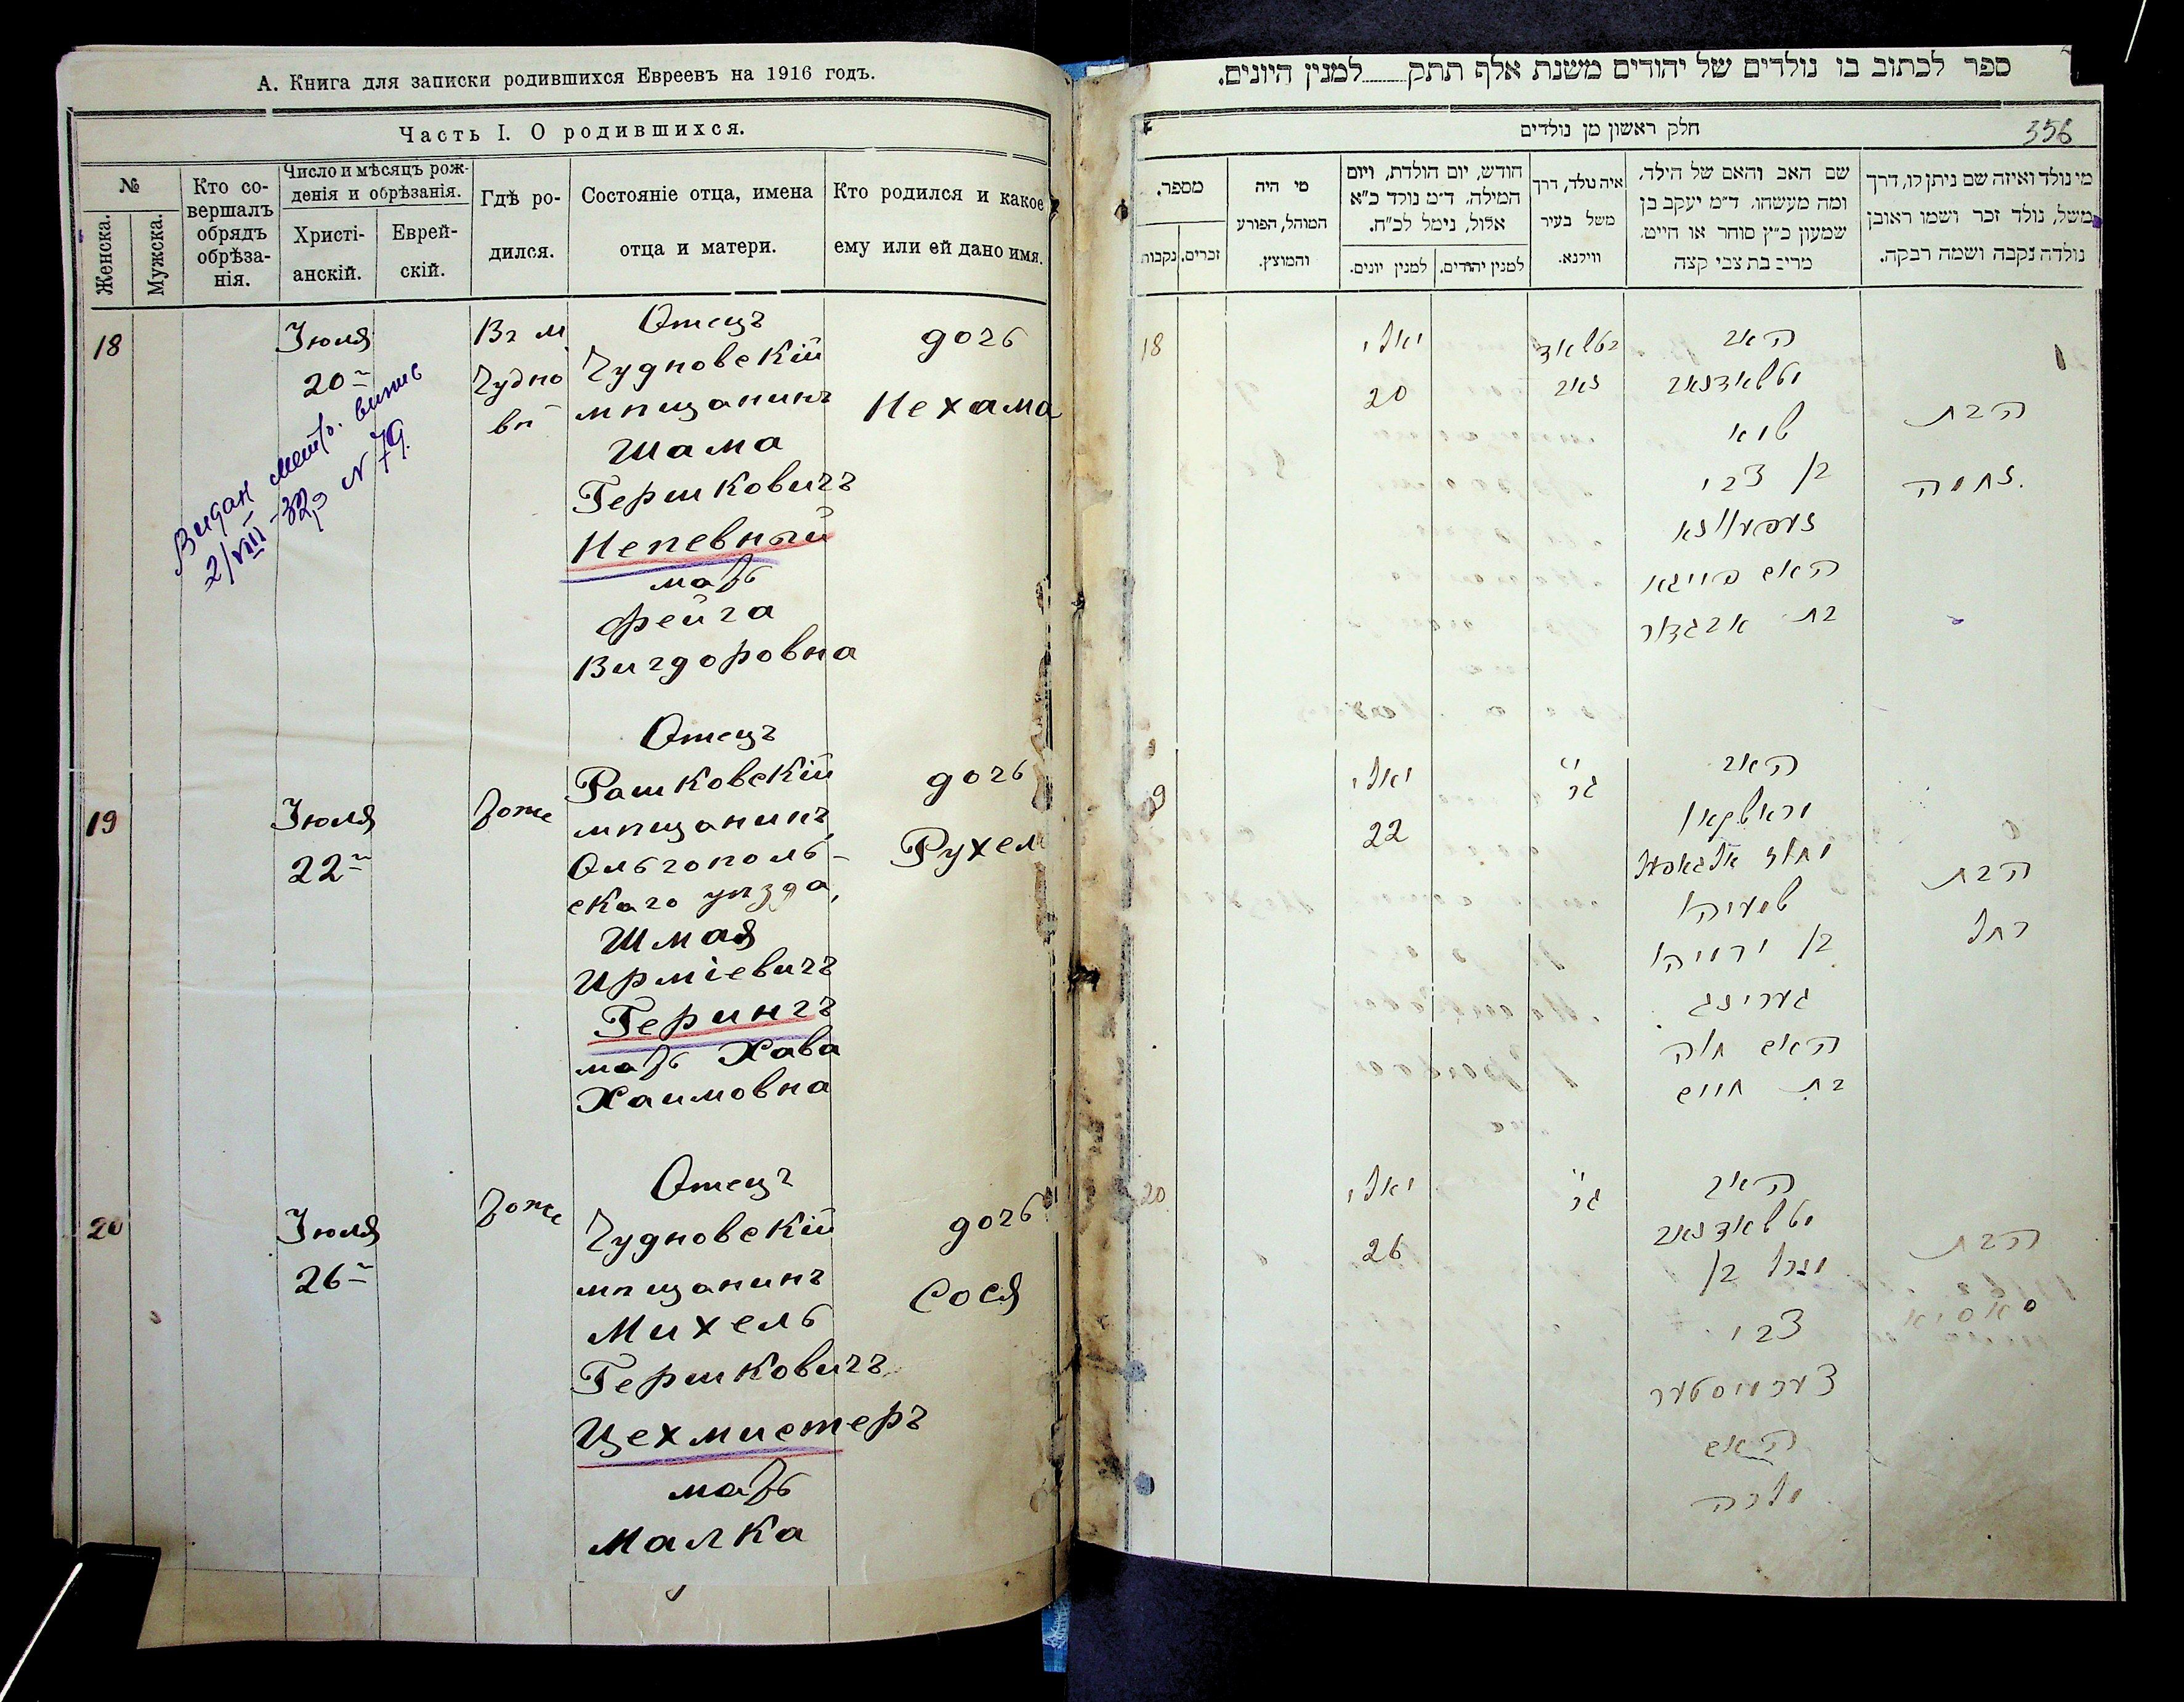 А. Книга для записки родившихся Евреевъ на 1916 годъ.
Часть I. О родившихся.
№
Женска.
Мужска.
Кто со-
вершалъ
обрядъ
обрѣза-
нія.
Число и мѣсяцъ рож-
денія и обрѣзанія.
Христі-
анскій.
Еврей-
скій.
Гдѣ ро-
дился.
Состояніе отца, имена
отца и матери.
Кто родился и какое
ему или ей дано имя.
18
Іюля
20
Въ м
Чудно
вѣ
Отецъ
Чудновскій
мѣщанинъ
Шама
Гершковичъ
Непевный
мать
Фейга
Вигдоровна
дочь
Нехама
Видан метр. випис
2/VIII-32р N 79.
19
Іюля
22
тоже
Отецъ
Рашковскій
мѣщанинъ
Ольгополь-
скаго уѣзда,
Шмая
Ирміевичъ
Герингъ
мать Хава
Хаимовна
дочь
Рухел
20
Іюля
26
тоже
Отецъ
Чудновскій
мѣщанинъ
Михель
Гершковичъ
Цехмистеръ
мать
Малка
дочь
Сося
ספר לכתוב בו נולדים של יהודים משנת אלף תתק למנין היונים.
חלק ראשון מן נולדים
356
מספר.
זכרים.
נקבות
מי היה
המוהל, הפורע
והמוצץ.
חודש, יום הולדת, ויום
המילה. ד״מ נולד כ״א
אלול, נימל לכ״ח.
למנין יונים.
למנין יהודים.
איה נולד, דרך
משל בעיר
ווילנא.
שם האב והאם של הילד,
ומה מעשהו. ד״מ יעקב בן
שמעון כ״ץ סוחר או חייט.
מרים בת צבי קצה
מי נולד ואיזה שם ניתן לו, דרך
משל, נולד זכר ושמו ראובן
נולדה נקבה ושמה רבקה.
18
יאלי
20
האב
בן צבי
האם פייגא
בת אביגדור
הבת
נחמה
9
יאלי
22
האב
שמעיה
בן ירמיה
גערינג
האם חוה
בת חיים
הבת
רחל
20
יאלי
26
האב
מיכל בן
צבי
צעכמיסטער
האם
מלכה
הבת
סאסיא